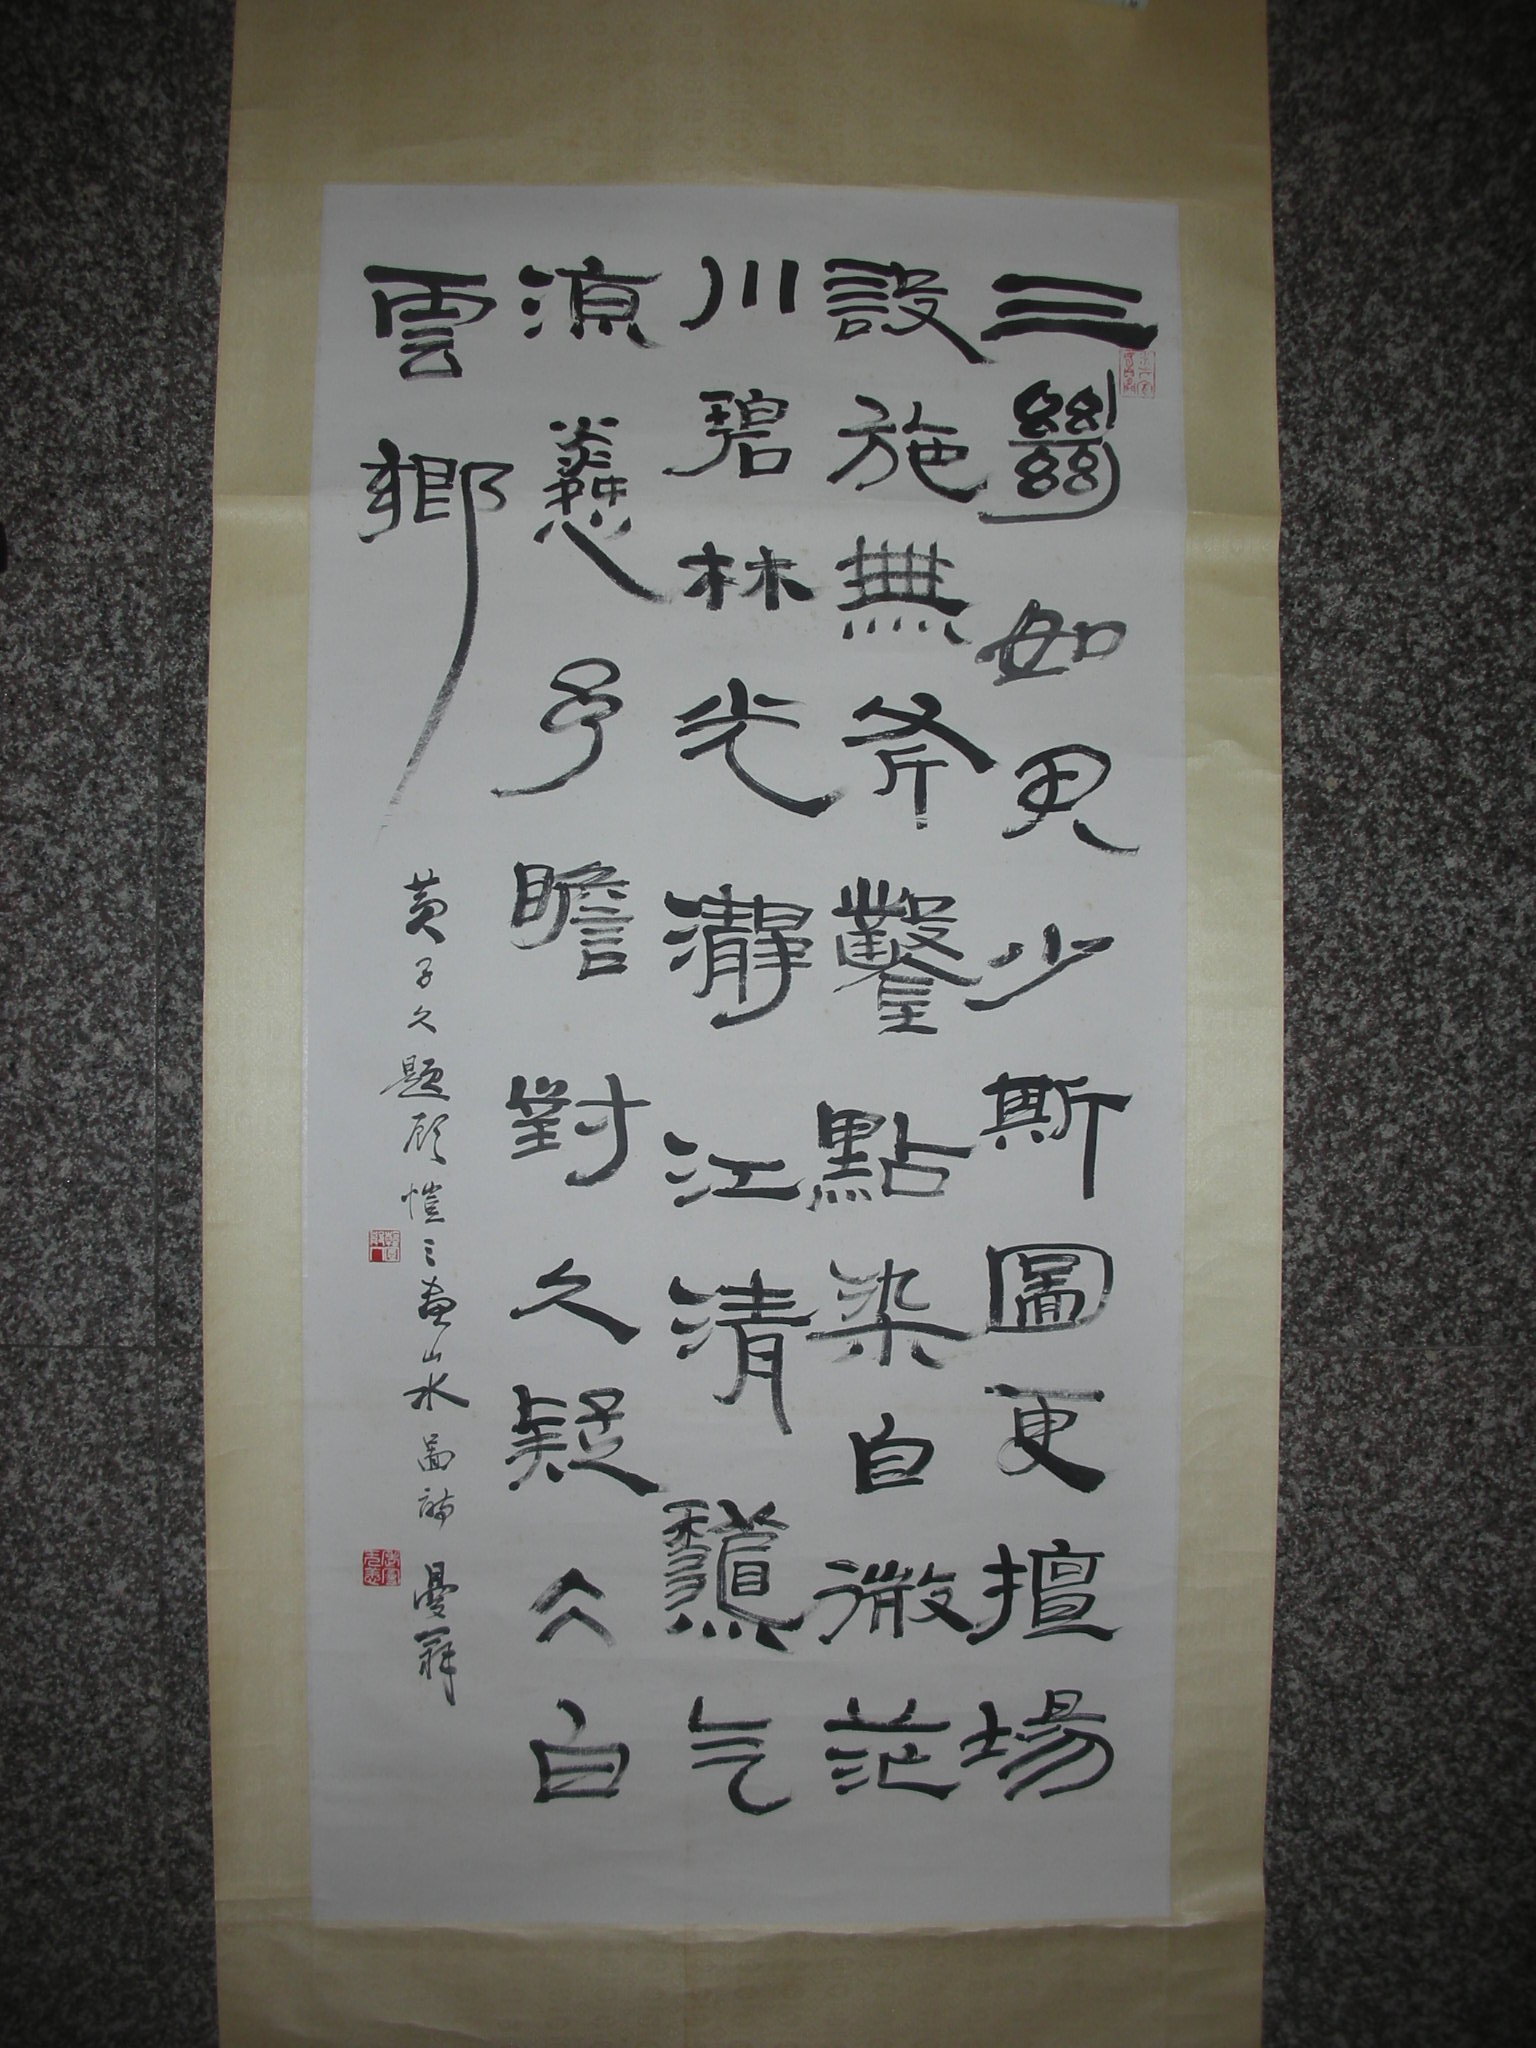 三絕如君少斯圖更擅場
設施無斧鑿點染自微茫
川碧林光瀞江清龝气
涼憐予瞻對久疑入白
雲鄉
黃子久題顧愷之畫山水圖詩